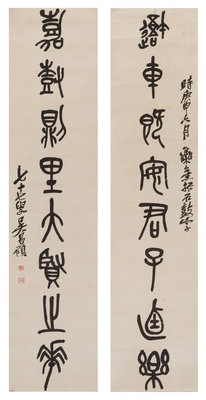 車既安君子迪樂
時庚申八月拓石鼓字
嘉樹則里大賢之
七十七叟吳昌碩